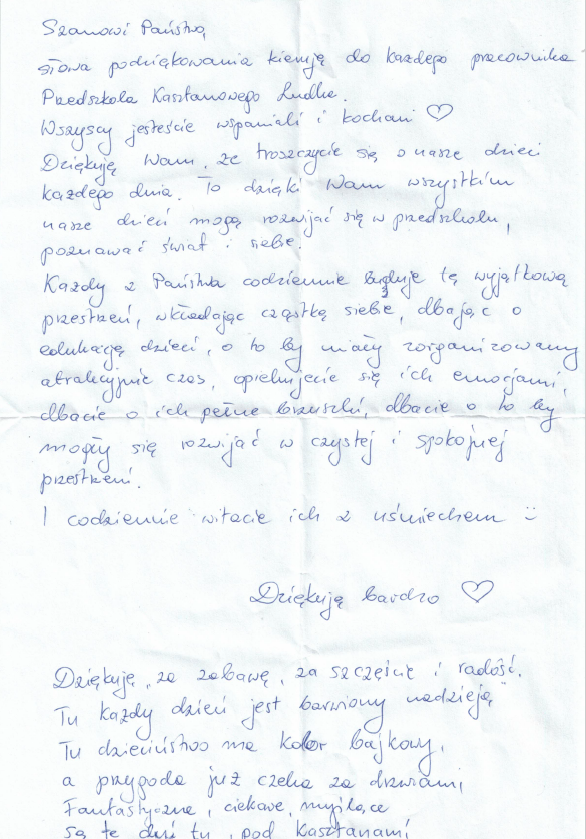 Szanowi Państwo,
słowa podziękowania kieruję do każdego pracownika
Przedszkola Kasztanowego Ludka.
Wszyscy jesteście wspaniali i kochani ♡
Dziękuję Wam, że troszczycie się o nasze dzieci
każdego dnia. To dzięki Wam wszystkim
nasze dzieci mogą rozwijać się w przedszkolu,
poznawać świat i siebie.
Każdy z Państwa codziennie buduje tę wyjątkową
przestrzeń, wkładając cząstkę siebie, dbając o
edukację dzieci, o to by miały zorganizowany
atrakcyjnie czas, opiekujecie się ich emocjami,
dbacie o ich pełne brzuszki, dbacie o to by
mogły się rozwijać w czystej i spokojnej
przestrzeni.
I codziennie witacie ich z uśmiechem :)
Dziękuję bardzo ♡
Dziękuję „za zabawę, za szczęście i radość.
Tu każdy dzień jest barwiony nadzieją
Tu dzieciństwo ma kolor bajkowy,
a przygoda już czeka za drzwiami
Fantastyczne, ciekawe, myślące
są te dni tu, pod Kasztanami